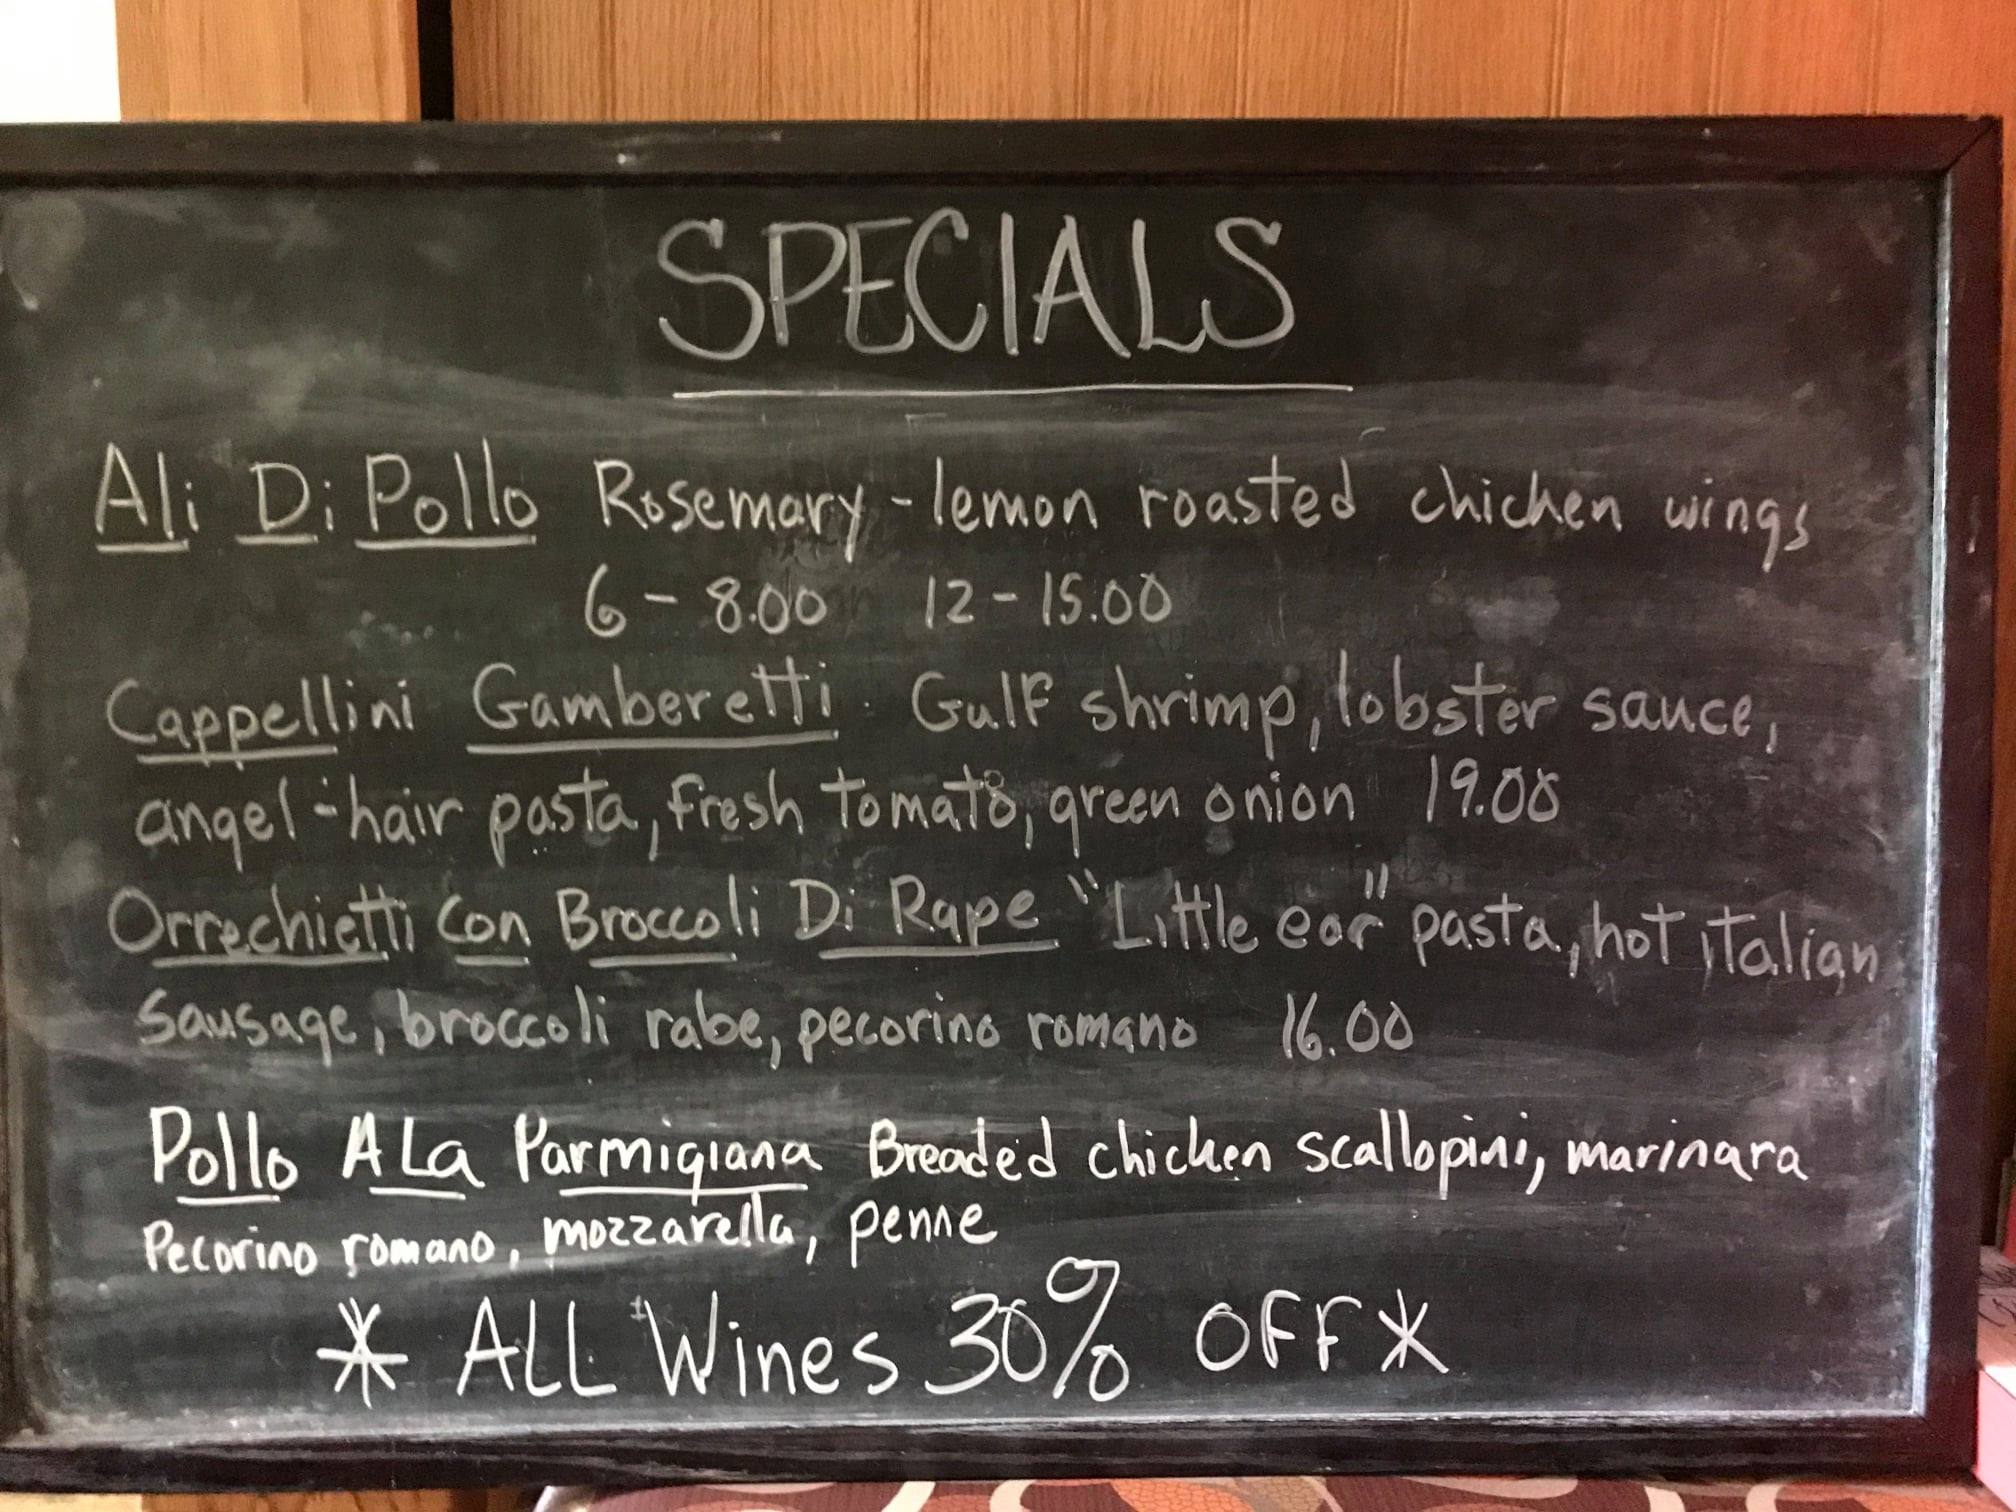 SPECIALS
Ali Di Pollo Rosemary - lemon roasted chicken wings
6 - 8.00 12 - 15.00
Cappellini Gamberetti. Gulf shrimp, lobster sauce,
angel-hair pasta, fresh tomato, green onion 19.00
Orrechietti Con Broccoli Di Rape "Little ear" pasta, hot italian
Sausage, broccoli rabe, pecorino romano 16.00
Pollo A La Parmigiana Breaded chicken scallopini, marinara
Pecorino romano, mozzarella, penne
* ALL Wines 30% OFF *